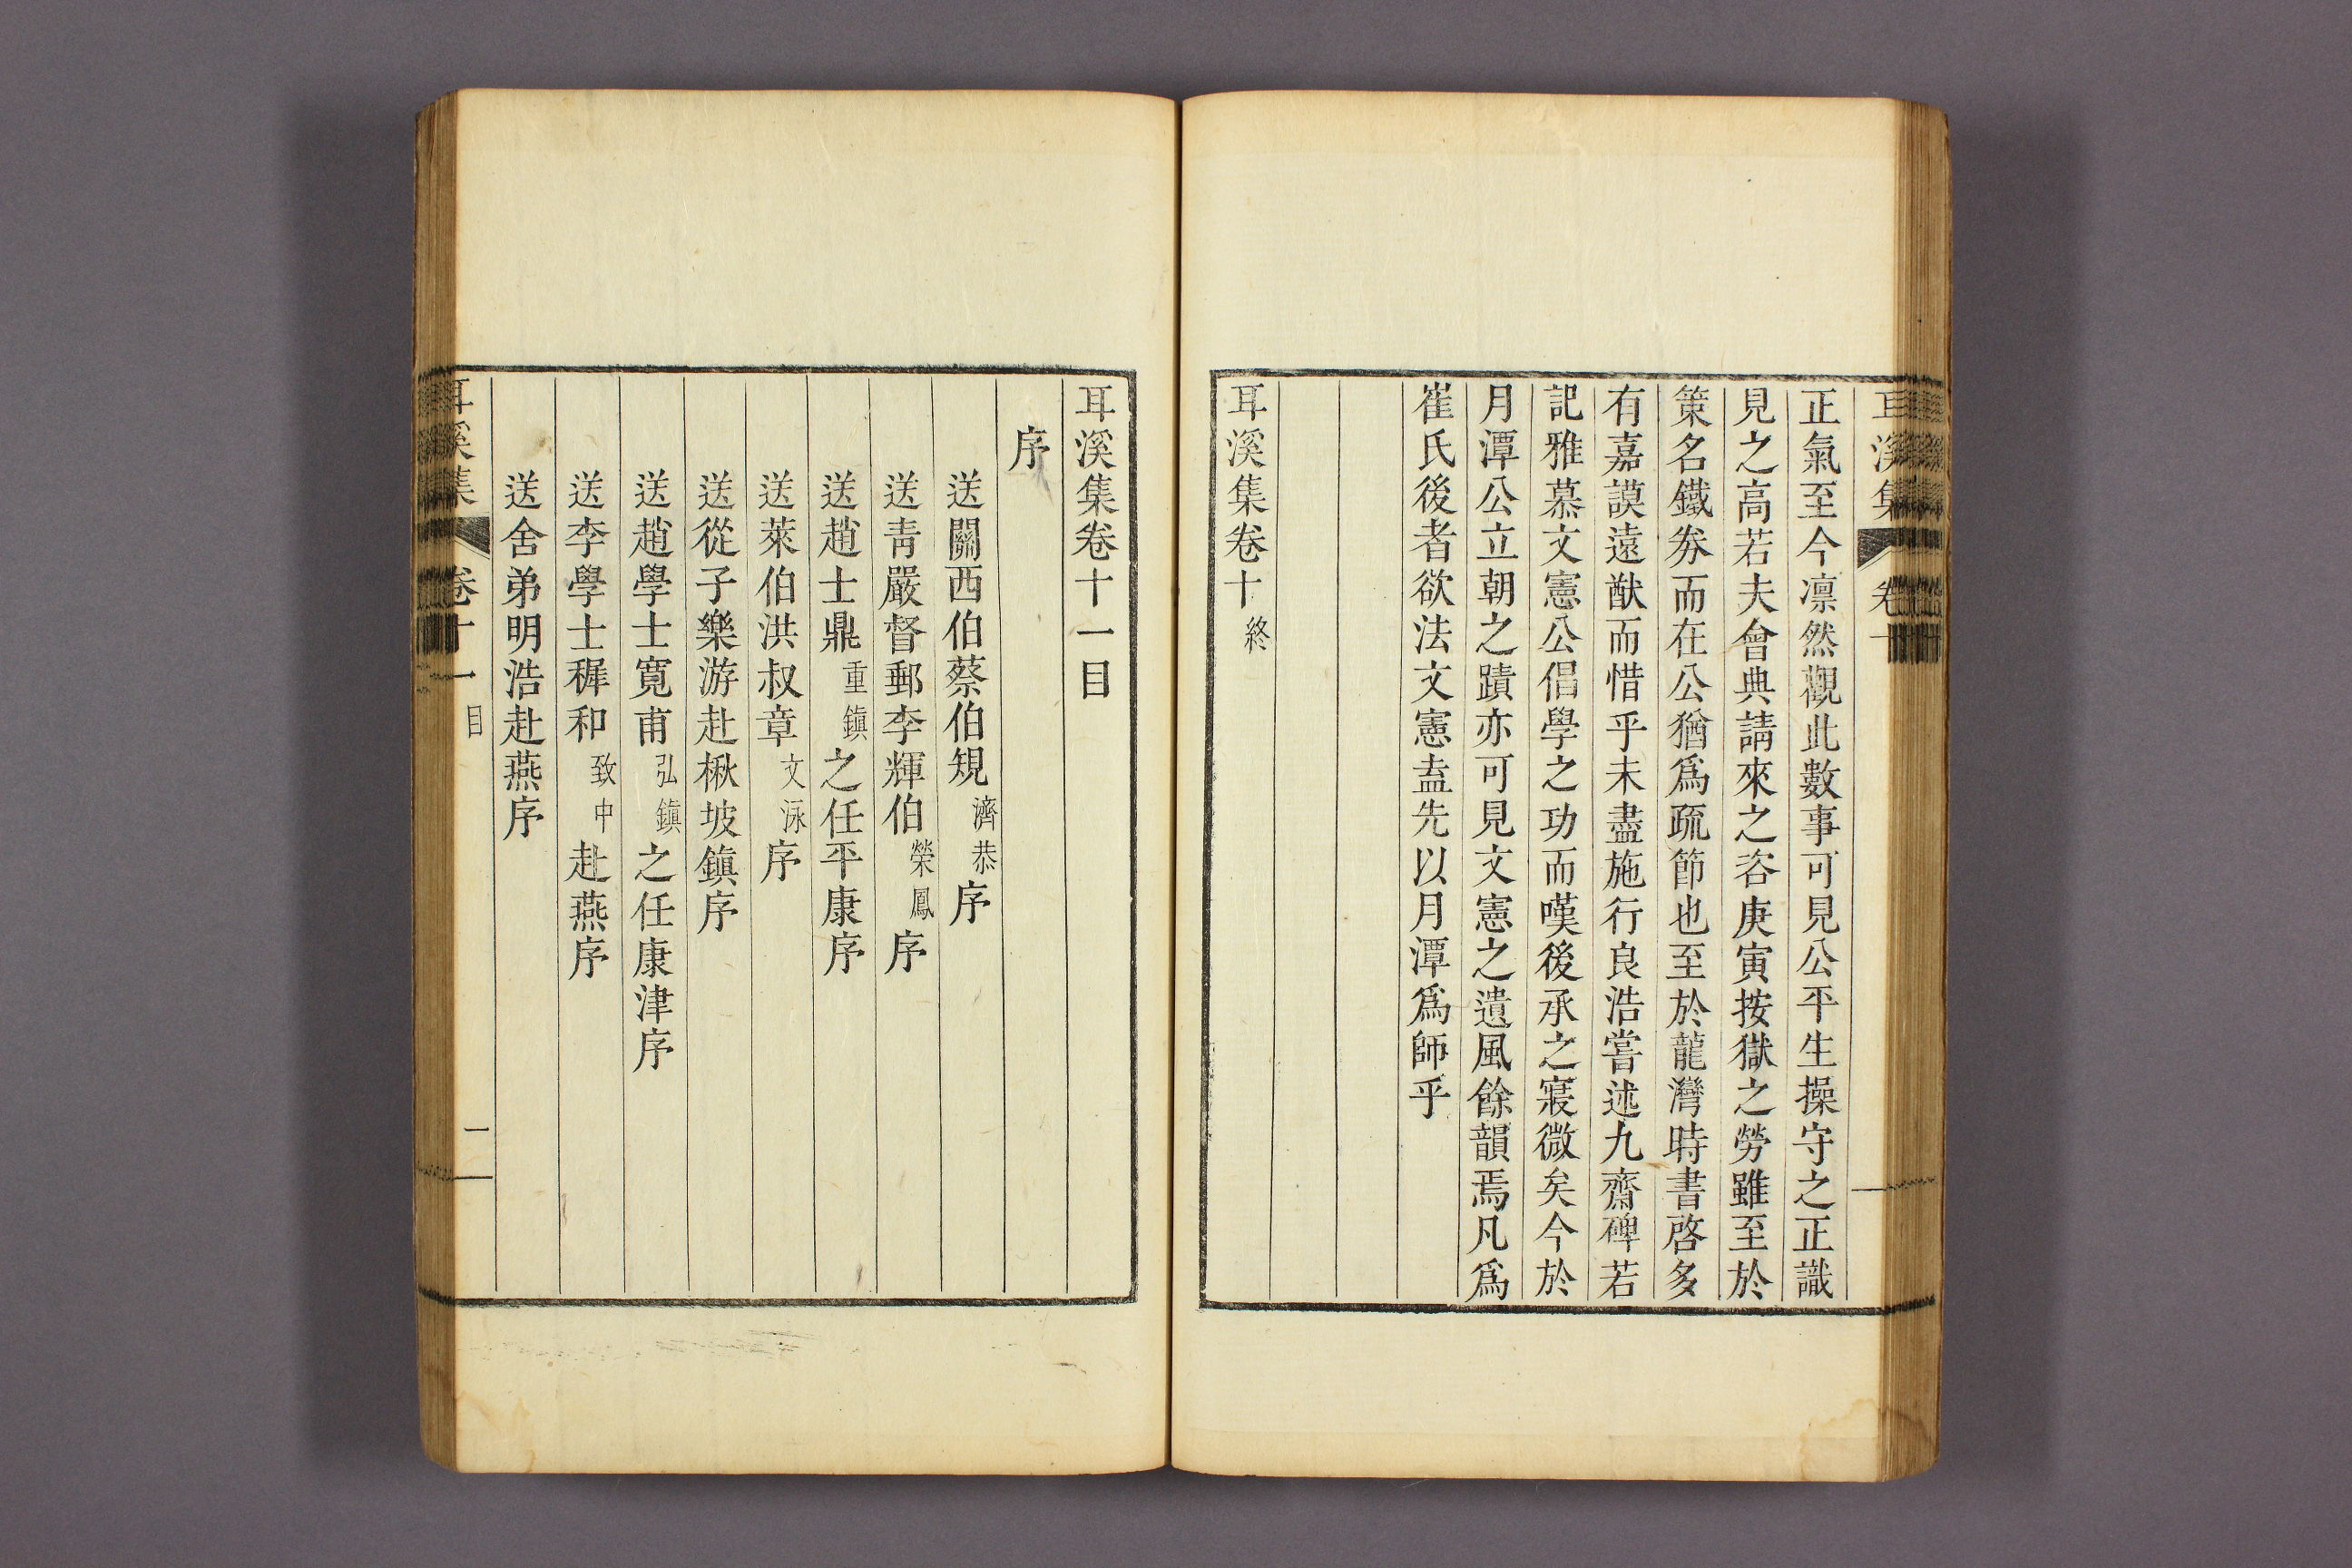 正氣至今凛然觀此數事可見公平生操守之正識
見之高若夫會典請來之咨庚寅按獄之勞雖至於
策名鐵券而在公猶爲疏節也至於龍灣時書啓多
有嘉謨遠猷而惜乎未盡施行良浩嘗述九齋碑若
記雅慕文憲公倡學之功而嘆後承之寢微矣今於
月潭公立朝之蹟亦可見文憲之遺風餘韻焉凡爲
崔氏後者欲法文憲盍先以月潭爲師乎
耳溪集卷十終
耳溪集卷十一目
序
送關西伯蔡伯規濟恭序
送靑嚴督郵李輝伯榮鳳序
送趙士鼎重鎭之任平康序
送萊伯洪叔章文泳序
送從子樂游赴楸坡鎭序
送趙學士寬甫弘鎭之任康津序
送李學士穉和致中赴燕序
送舍弟明浩赴燕序
耳溪集 卷十一 目 一